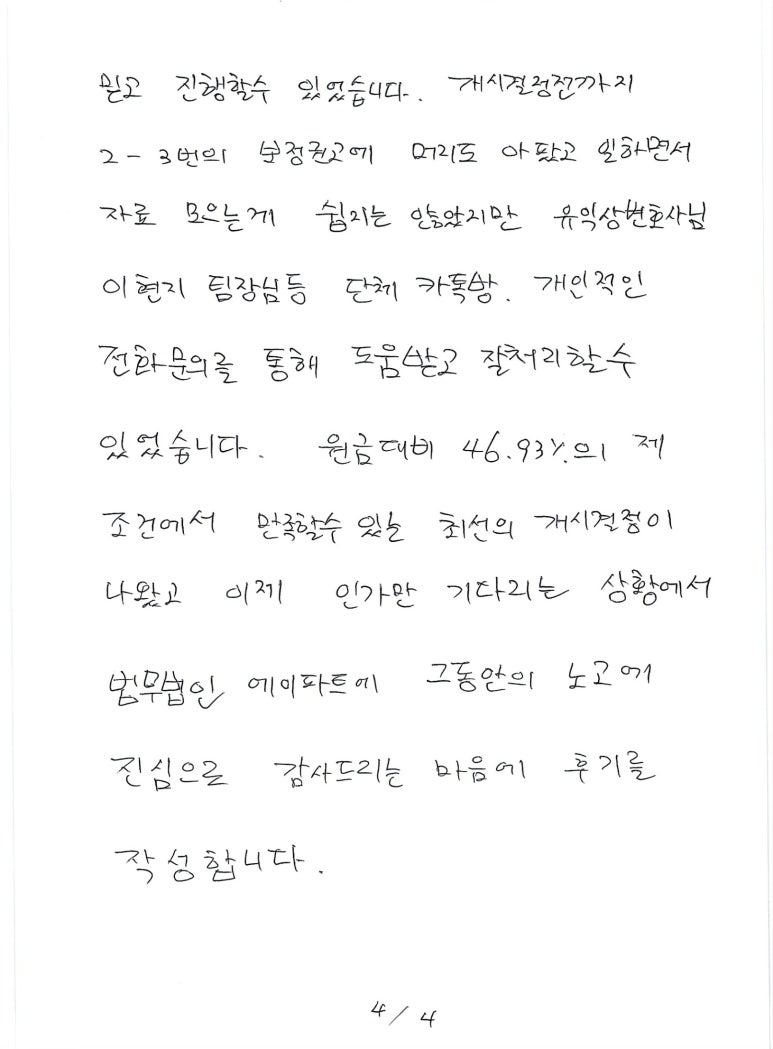 믿고 진행할수 있었습니다. 개시결정전까지
2-3번의 보정권고에 머리도 아팠고 일하면서
자료 모으는게 쉽지는 않았지만 유익상변호사님
이현지 팀장님등 단체 카톡방. 개인적인
전화문의를 통해 도움받고 잘처리할수
있었습니다. 원금대비 46.93%의 제
조건에서 만족할수 있는 최선의 개시결정이
나왔고 이제 인가만 기다리는 상황에서
법무법인 에이파트에 그동안의 노고에
진심으로 감사드리는 마음에 후기를
작성합니다.
4/4